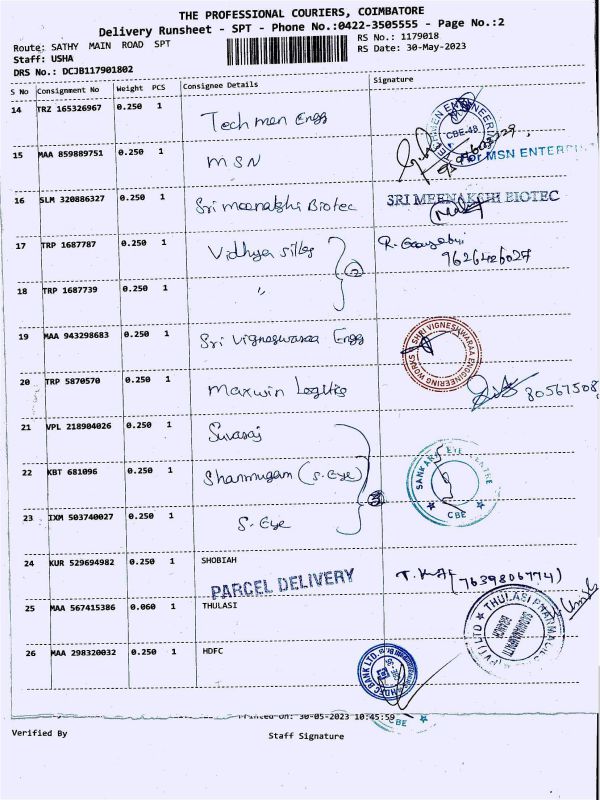 THE PROFESSIONAL COURIERS, COIMBATORE
Delivery Runsheet - SPT - Phone No.:0422-3505555 - Page No.:2
Route: SATHY MAIN ROAD SPT
RS No.: 1179018
Staff: USHA
RS Date: 30-May-2023
DRS No.: DCJB117901802
S No Consignment No Weight PCS Consignee Details Signature
14 TRZ 165326967 0.250 1 Techmen Engg
CBE-48
15 MAA 859889751 0.250 1 MSN
For MSN ENTERPRI
16 SLM 320886327 0.250 1 Sri meenakshi Biotec SRI MEENAKSHI BIOTEC
17 TRP 1687787 0.250 1 Vidhya silks R.
2 9626426027
18 TRP 1687739 0.250 1 "
19 MAA 943298683 0.250 1 Sri Vigneswaraa Engg SHRI VIGNESHWARAA ENGINEERING WORKS
20 TRP 5870570 0.250 1 Maxwin Logitics 80567508
21 VPL 218904026 0.250 1 Suvaraj
22 KBT 681096 0.250 1 Shanmugam (S.Eye) SANKARA EYE CENTRE
3 CBE
23 IXM 503740027 0.250 1 S.Eye
24 KUR 529694982 0.250 1 SHOBIAH
PARCEL DELIVERY (7639806774)
25 MAA 567415386 0.060 1 THULASI THULASI PHARMACIES (P) LTD
26 MAA 298320032 0.250 1 HDFC HDFC BANK LTD
Printed On: 30-05-2023 10:45:59
CBE
Verified By
Staff Signature